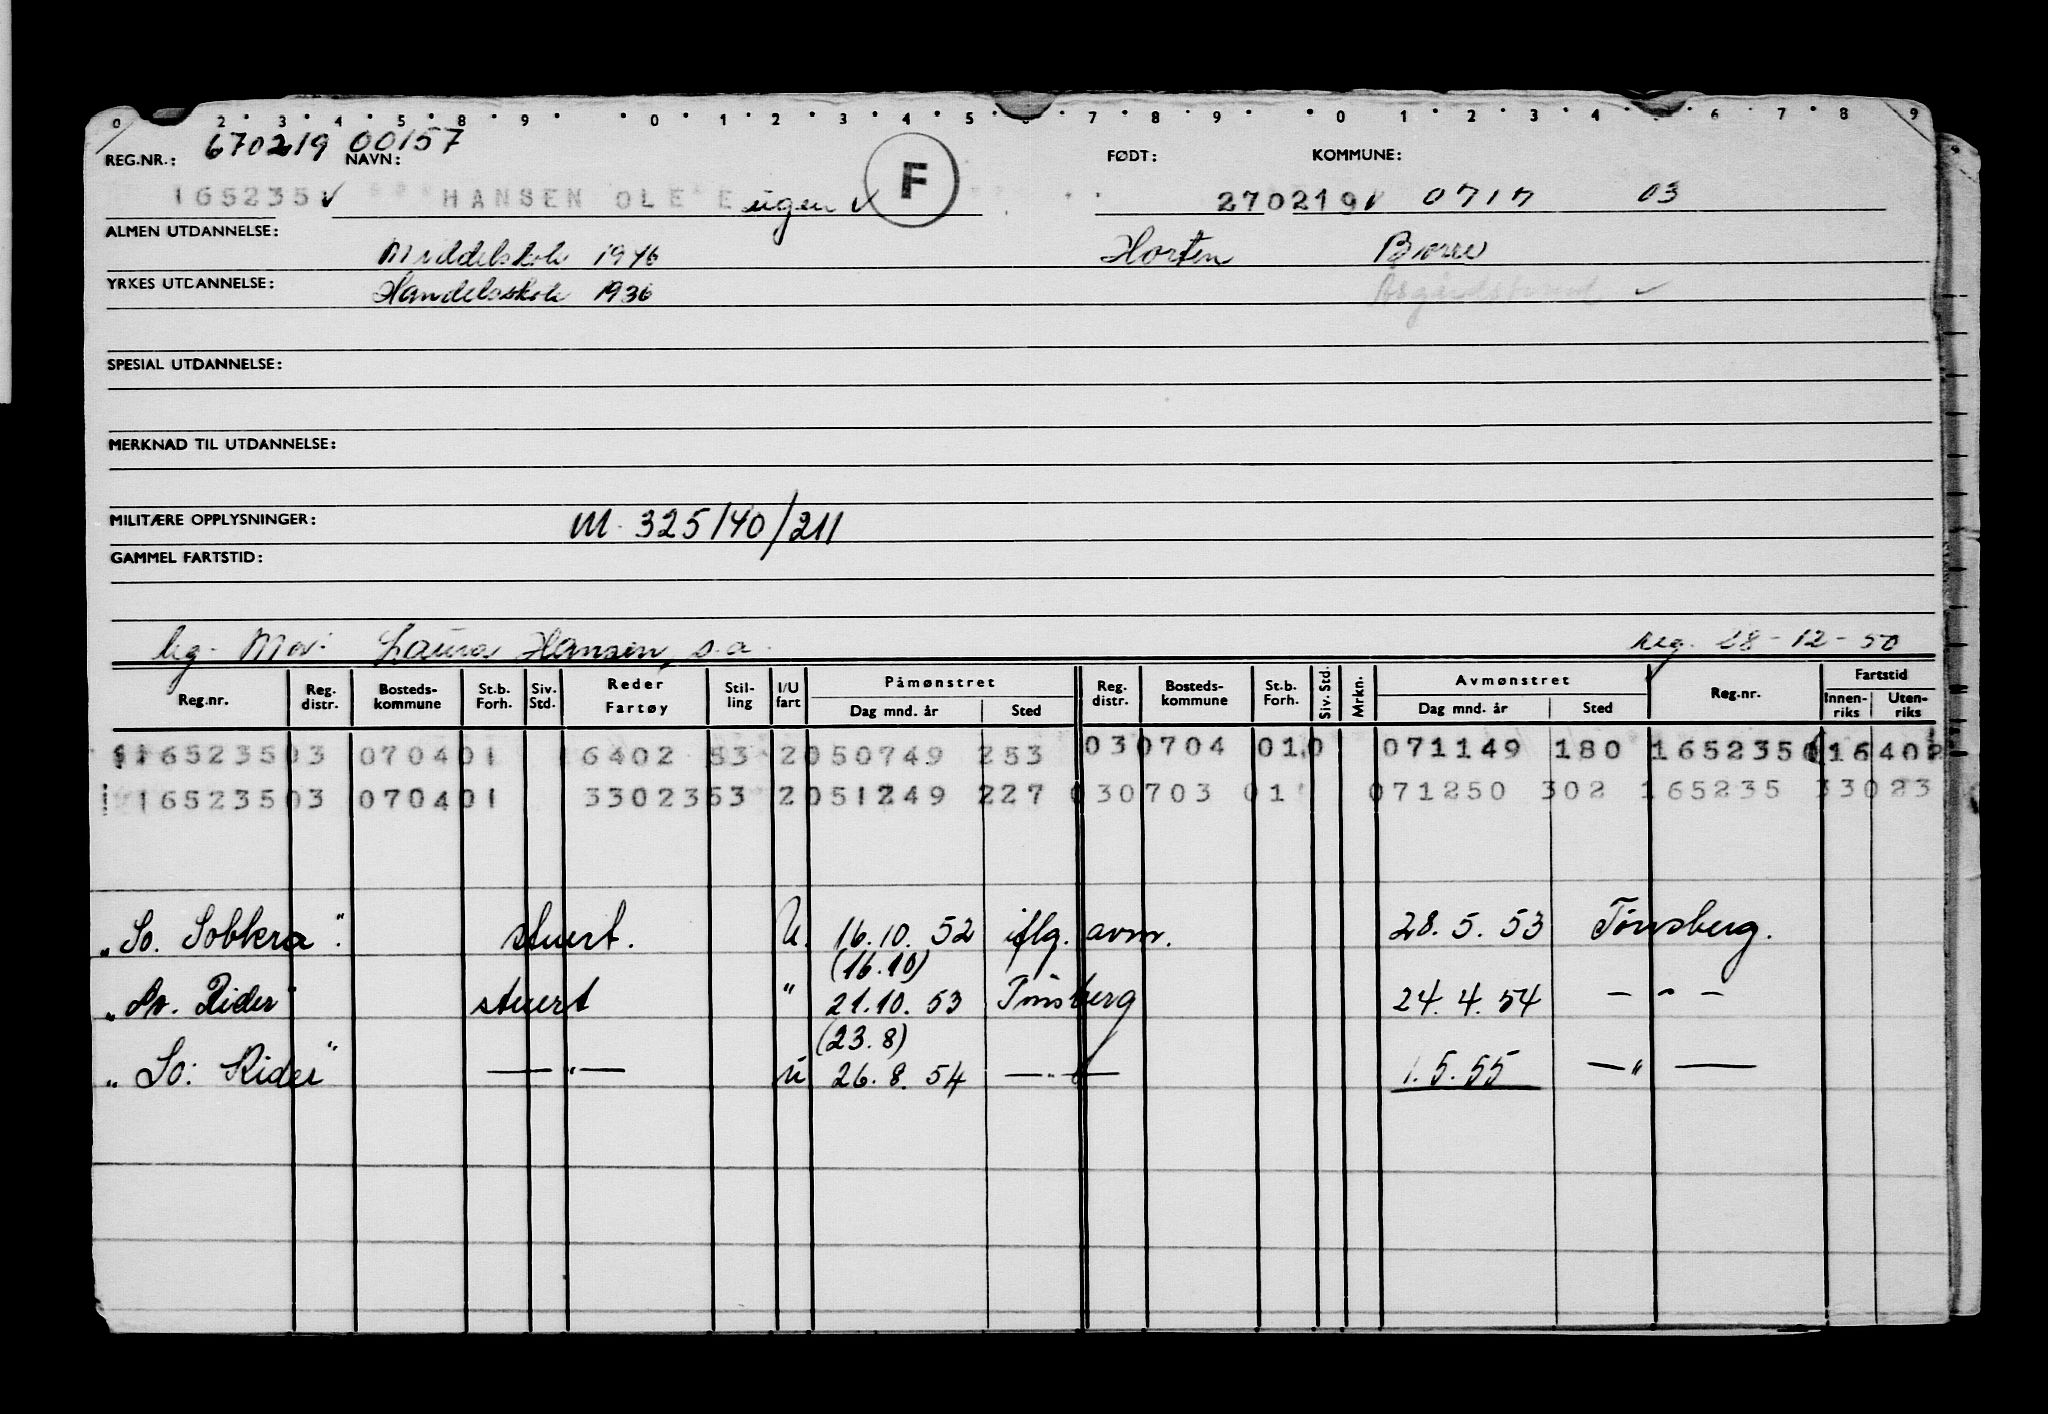 0 2 3 4 5 8 9 0 1 2 3 4 5 6 7 8 9 0 1 2 3 4 6 7 8 9
670219 00157
REG.NR.: NAVN: F FØDT: KOMMUNE:
165235 ✓ HANSEN OLE Eugen ✓ 270219 ✓ 0717 03
ALMEN UTDANNELSE: Middelskole 1946 Horten Borre
YRKES UTDANNELSE: Handelsskole 1936 Åsgårdstrand ✓
SPESIAL UTDANNELSE:
MERKNAD TIL UTDANNELSE:
MILITÆRE OPPLYSNINGER: M. 325/40/211
GAMMEL FARTSTID:
Mor: Laura Hansen, s.a. reg. 28-12-50
Reg.nr. Reg. distr. Bosteds- kommune St.b. Forh. Siv. Std. Reder Fartøy Stil- ling I/U fart Påmønstret Dag mnd. år Sted Reg. distr. Bosteds- kommune St.b. Forh. Siv. Std. Mrkn. Avmønstret Dag mnd. år Sted Reg.nr. Fartstid Innen- riks Uten- riks
165235 03 0704 01 6402 53 2 050749 253 03 0704 01 0 071149 180 165235 16402
165235 03 0704 01 33023 53 2 051249 227 03 0703 01 071250 302 165235 33023
"So. Sobkra". stuert. U. 16.10.52 iflg. avm. 28.5.53 Tønsberg.
(16.10)
"So. Rider" stuert " 21.10.53 Tønsberg 24.4.54 — " —
(23.8)
"So: Rider" — " — U 26.8.54 — " — 1.5.55 — " —